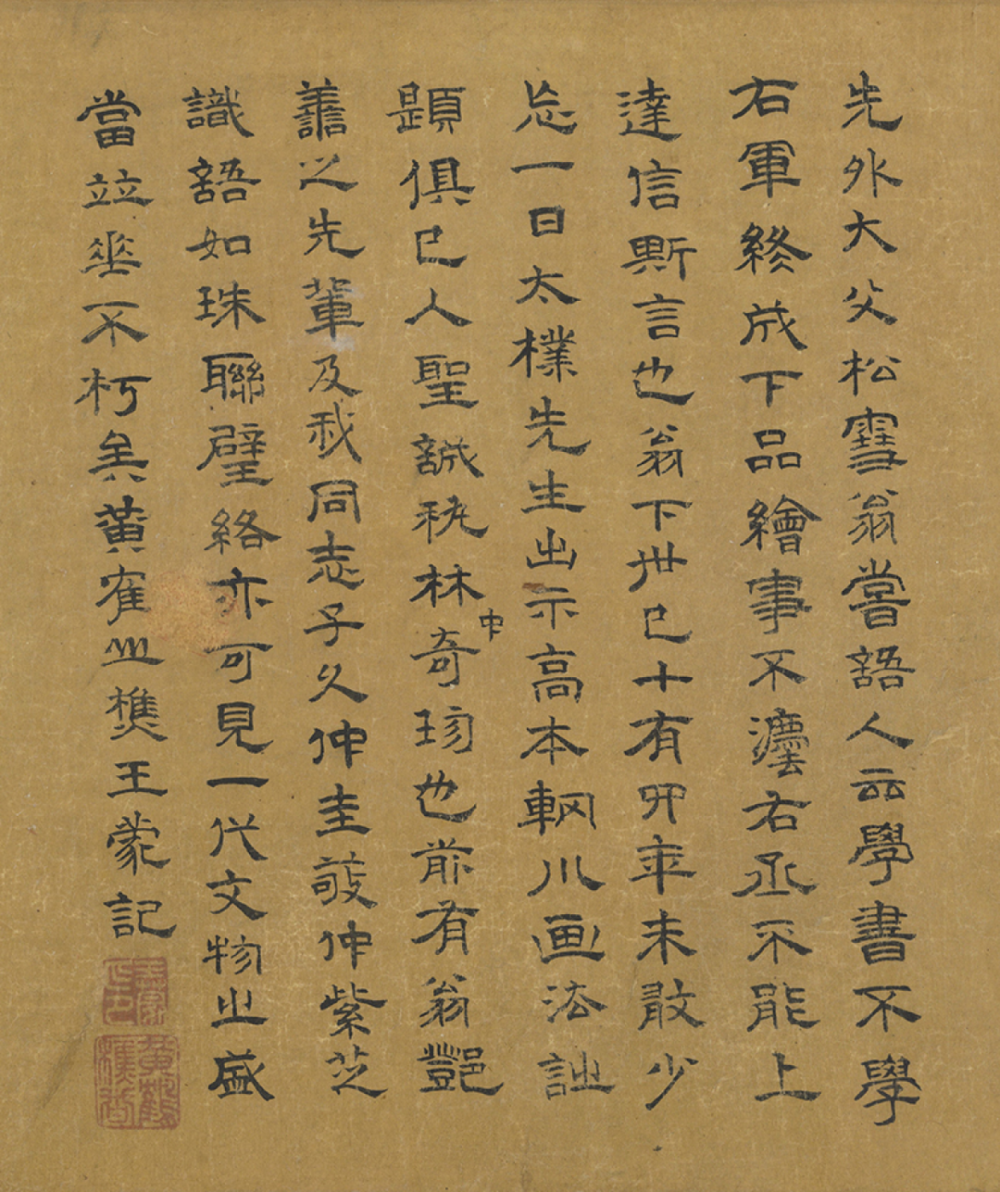 先外大父松雪翁嘗語人云學書不學
右軍終成下品繪事不灋右丞不能上
達信斯言也翁下世已十有四年未敢少
忘一日太樸先生出示高本輞川画法
題俱已人聖誠秘林中奇珍也前有翁
善之先輩及我同志子久仲圭敬仲紫芝
識語如珠聯璧絡亦可見一代文物之盛
當竝垂不朽矣黃崔山樵王蒙記